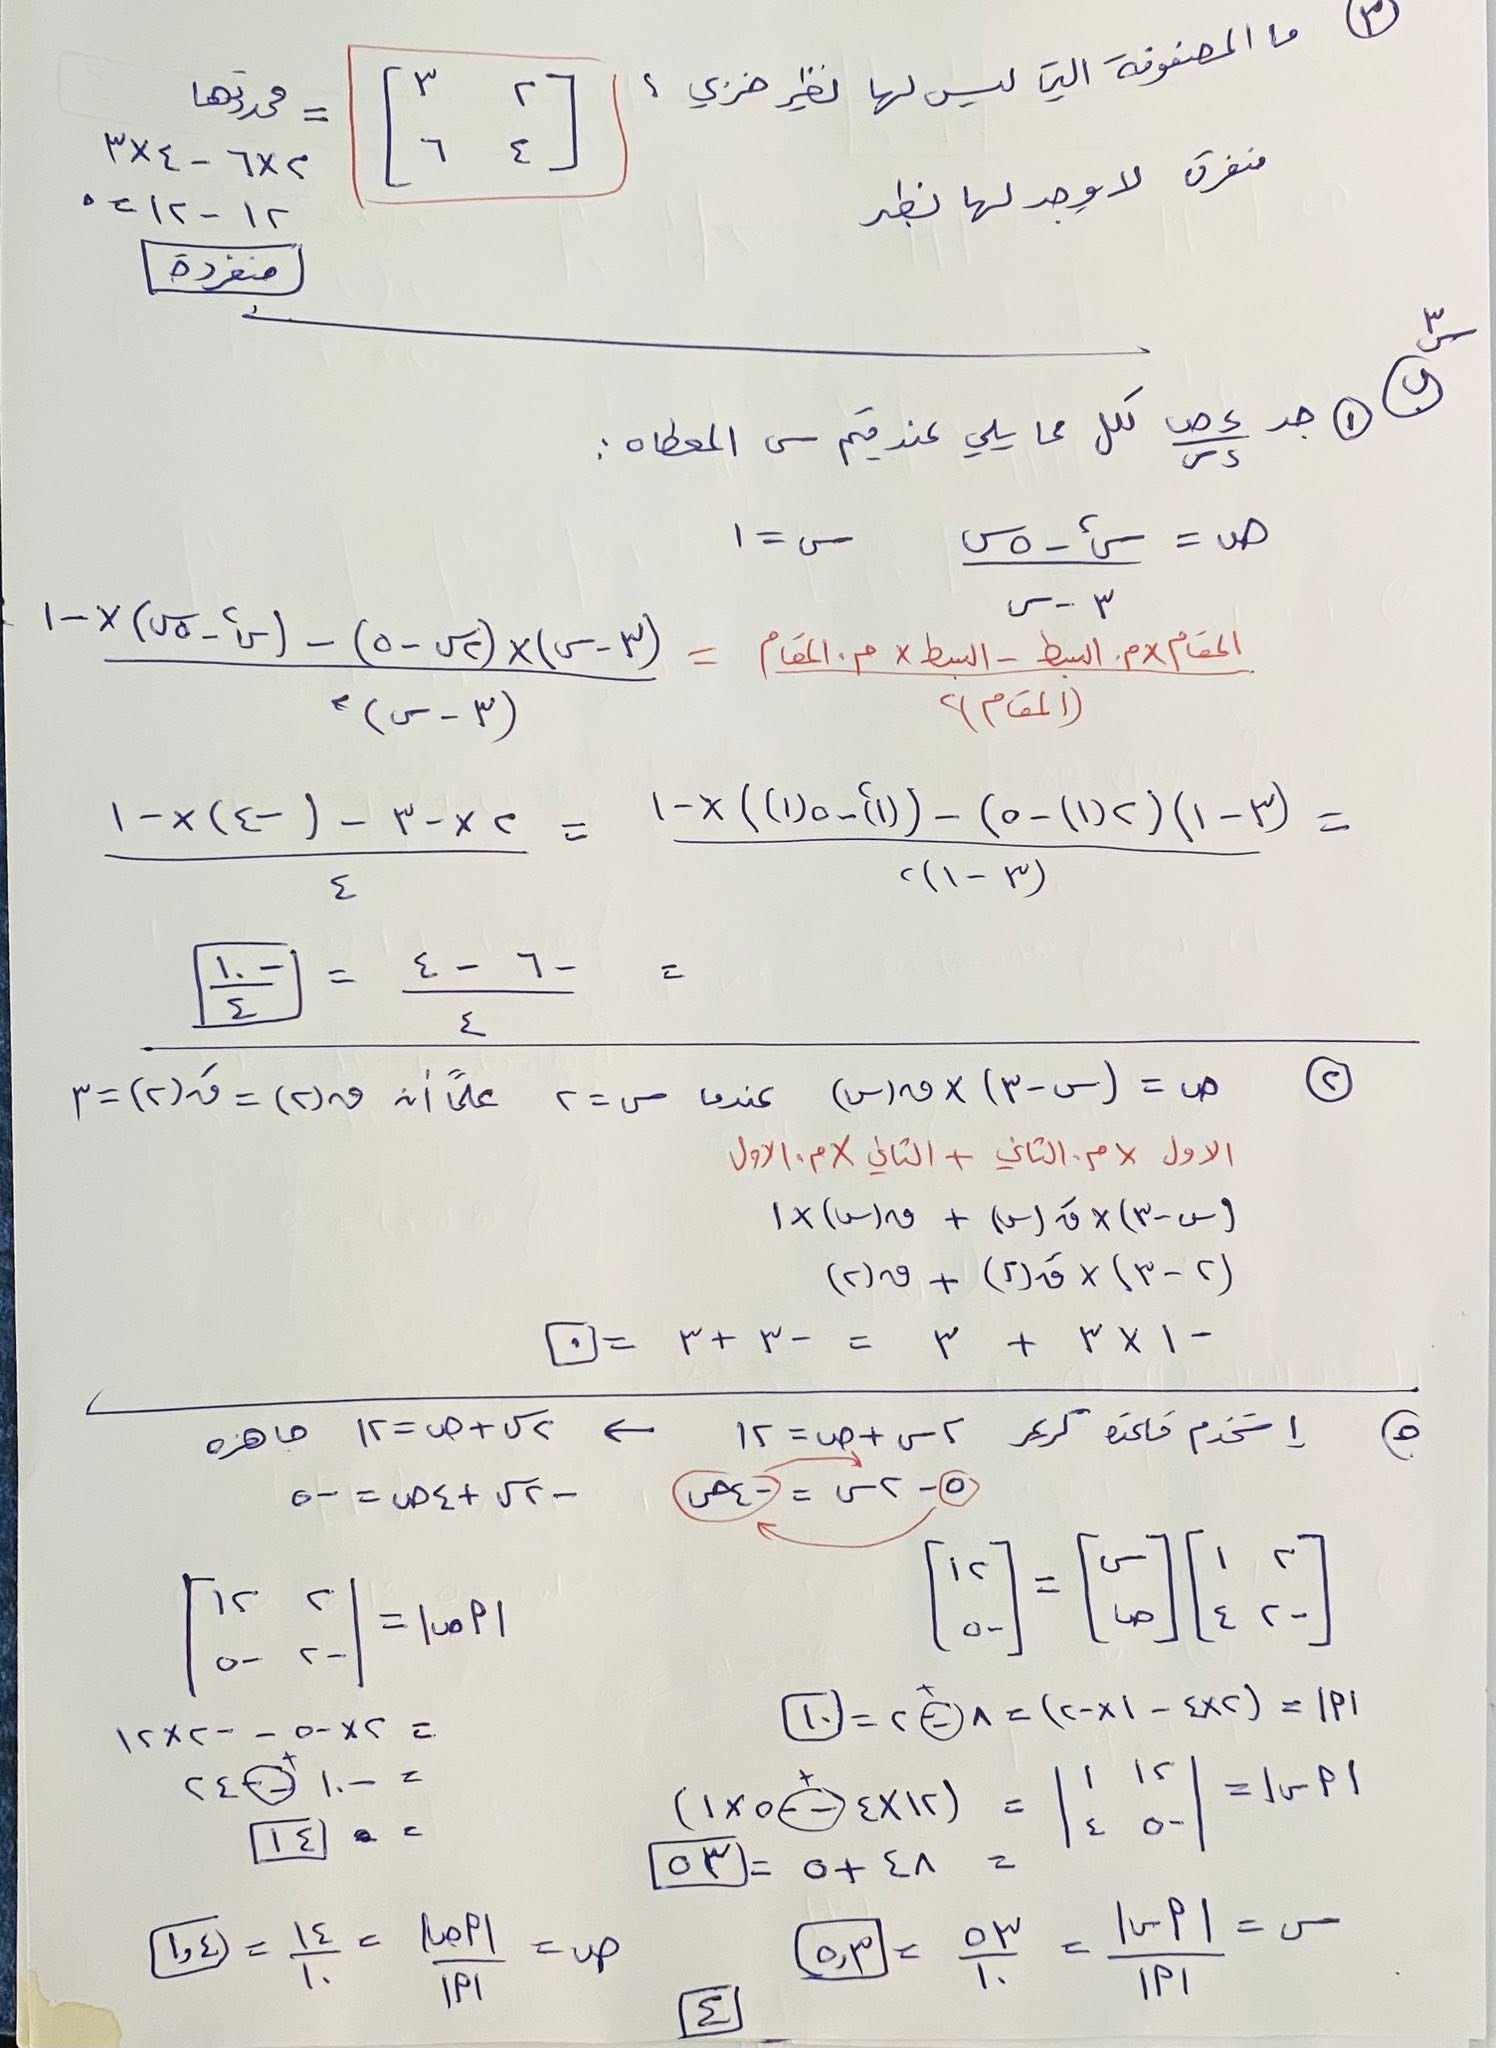 ٣ ما المصفوفة التي ليس لها نظير ضربي ؟ [٢ ٣ ; ٤ ٦] = محددتها
٢×٦ - ٤×٣
منفردة لا يوجد لها نظير
١٢ - ١٢ = ٠
منفردة
س٣
ب ① جد دص/دس لكل مما يلي عند قيم س المعطاه :
ص = (س² - ٥س)/(٣ - س) س = ١
(المقام × م. البسط - البسط × م. المقام)/(المقام)² = ((٣ - س)×(٢س - ٥) - (س² - ٥س)× -١)/(٣ - س)²
= ((٣ - ١)(٢(١) - ٥) - ((١)² - ٥(١))× -١)/(٣ - ١)² = (٢× -٣ - (-٤)× -١)/٤
= (-٦ - ٤)/٤ = -١٠/٤
② ص = (س - ٣)×ق(س) عندما س = ٢ علمًا أن ق(٢) = قَ(٢) = ٣
الاول × م. الثاني + الثاني × م. الاول
(س - ٣)×قَ(س) + ق(س)×١
(٢ - ٣)×قَ(٢) + ق(٢)
-١ × ٣ + ٣ = -٣ + ٣ = ٠
إستخدم قاعدة كريمر ٢س + ص = ١٢ ← ٢س + ص = ١٢ جاهزه
٥ - ٢س = -٤ص -٢س + ٤ص = -٥
[٢ ١ ; -٢ ٤] [س ; ص] = [١٢ ; -٥]
|أص| = |٢ ١٢ ; -٢ -٥|
|أ| = (٢×٤ - ١× -٢) = ٨ - - ٢ = ١٠
= ٢× -٥ - -٢×١٢
|أس| = |١٢ ١ ; -٥ ٤| = (١٢×٤ - -٥×١)
= -١٠ - - ٢٤
= ٤٨ + ٥ = ٥٣
= ١٤
س = |أس|/|أ| = ٥٣/١٠ = ٥,٣
ص = |أص|/|أ| = ١٤/١٠ = ١,٤
٤